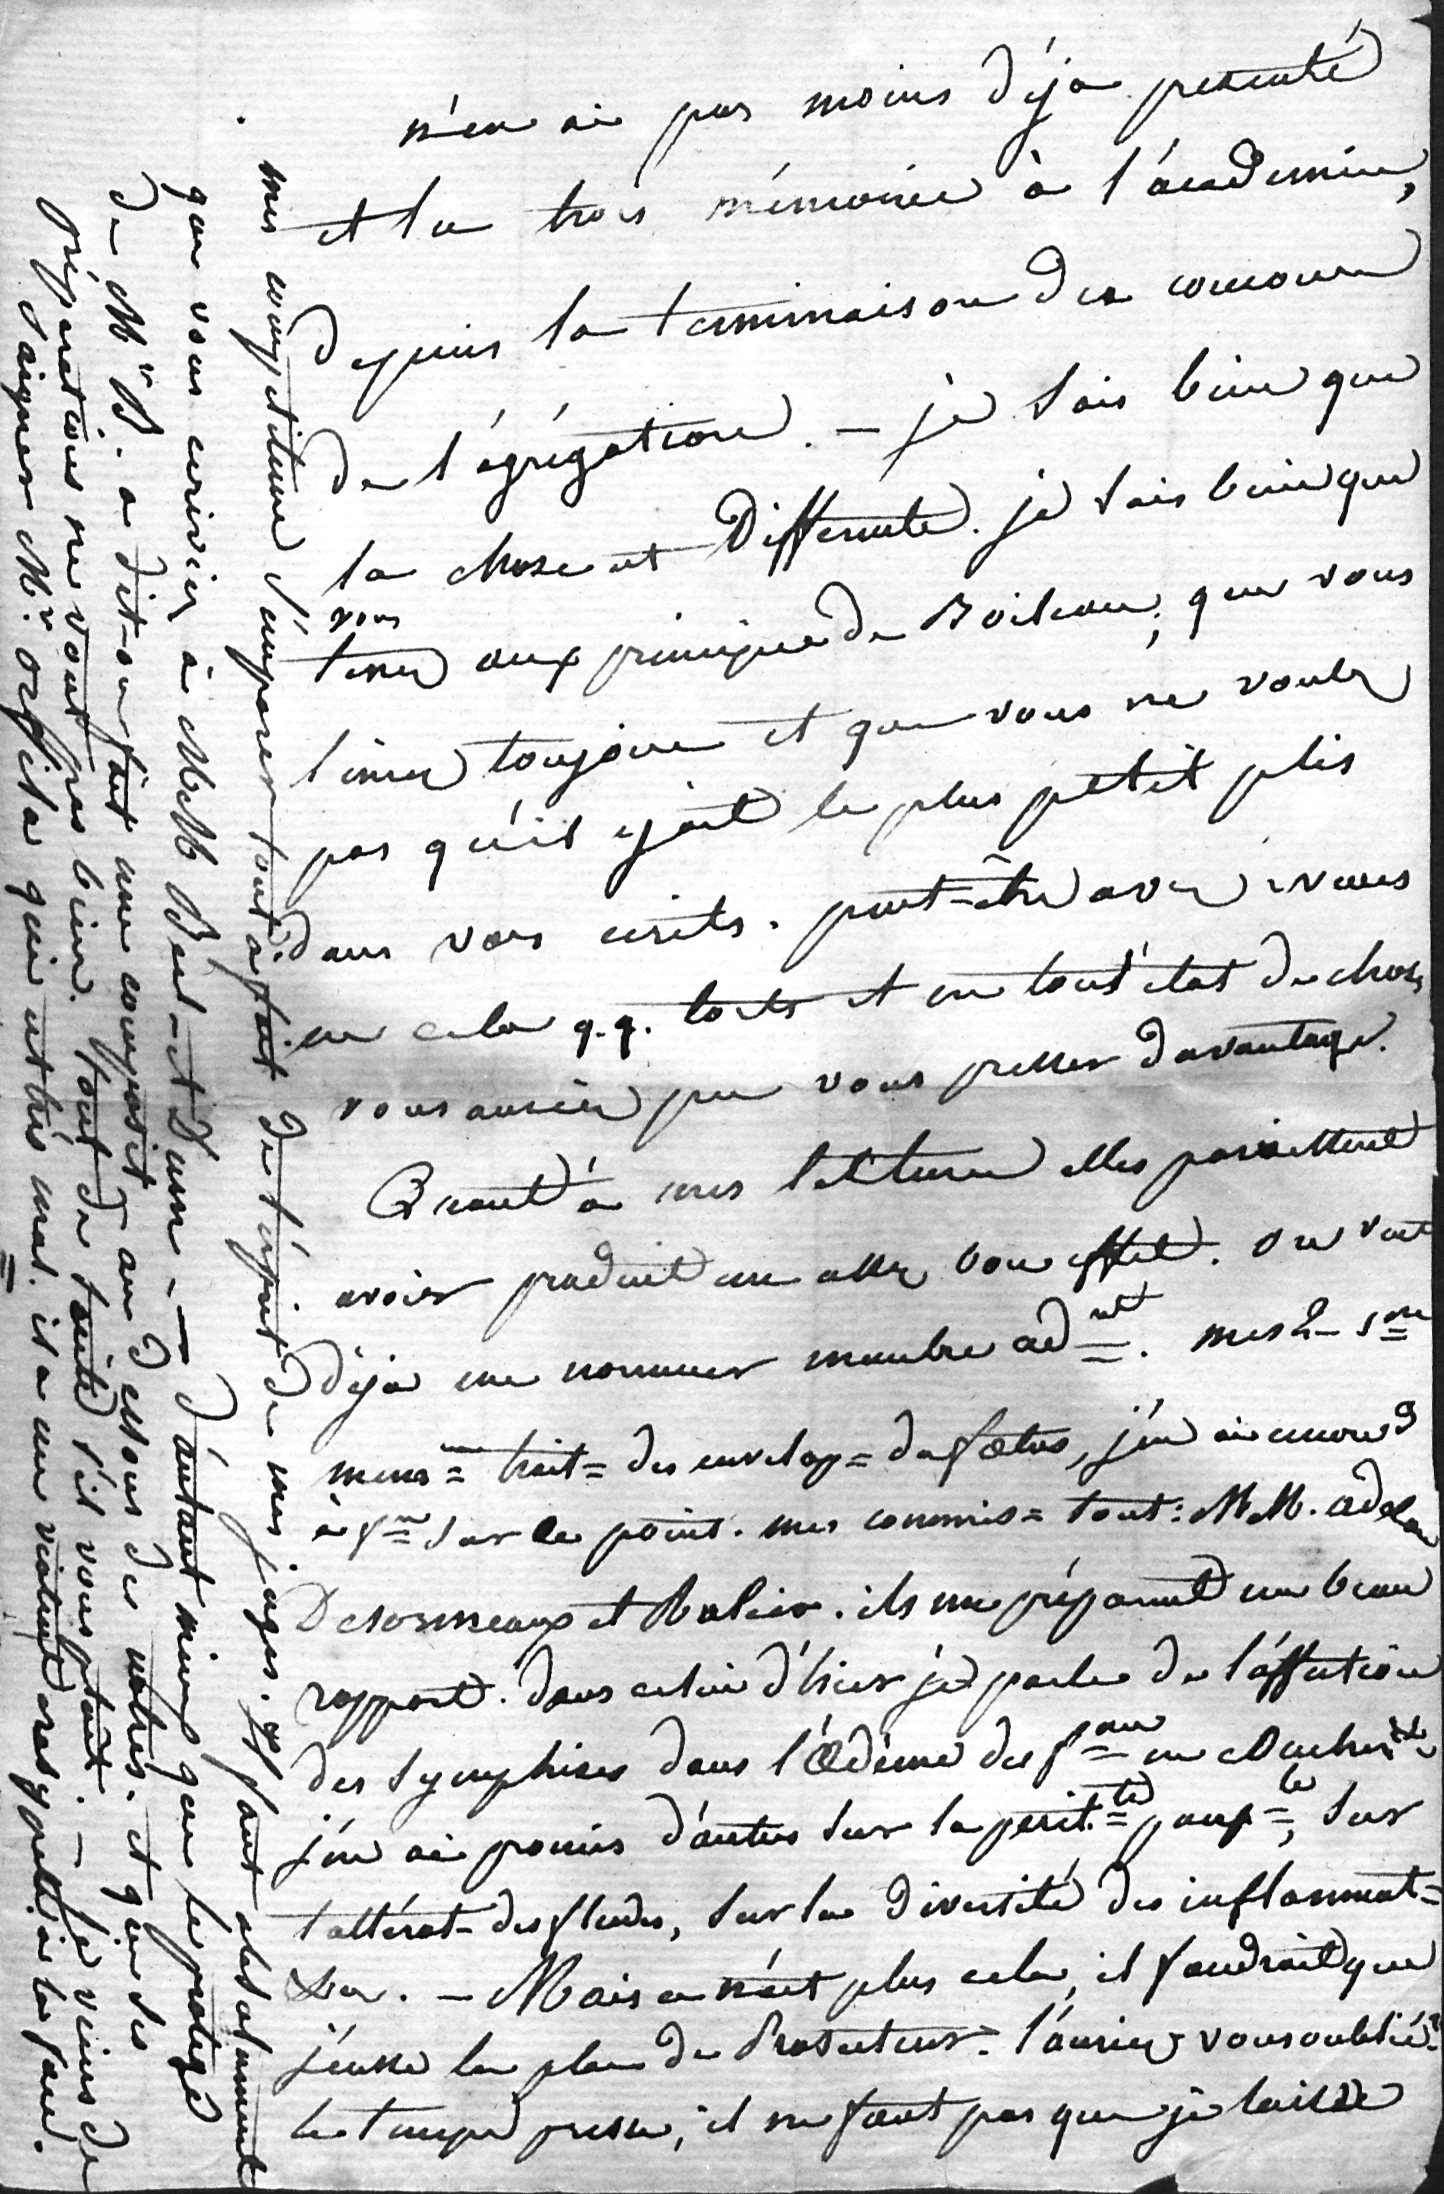 n'en ai pas moins déja presenté
et lu trois mémoires à l'académie,
depuis la terminaison des concours
de l'agrégation. – je sais bien que
la chose est differente. je sais bien que
vous
tenez aux principes de Boileau, que vous
limez toujours et que vous ne voulez
pas qu'il y ait le plus petit plis
dans vos écrits. peut-être avez-vous
en cela q.q. torts et en tout état de choses
vous auriez pu vous presser davantage.
Quant à mes lectures elles paroissent
avoir produit un assez bon effet. on veut
déja me nommer membre ad^nt. mes 2 1^ers
mem= trait= des envelop= du fœtus, j'en ai encore
à f^re sur ce point. mes commis= sont: MM. adelon
Desormeaux et . ils me préparent un beau
rapport. dans celui d'hier je parle de l'affection
des symphises dans l'Œdème des f^mes en couches
j'en ai promis d'autres sur la perit^te puerp^le, sur
l'altérat- des fluides, sur la diversité des inflammat=
&a. – Mais ce n'est plus cela, il faudrait que
j'eusse la place de Prosecteur. l'auriez vous oublié?
le temps presse, il ne faut pas que je laisse
mes compétiteurs s'emparer tout à fait de l'ésprit de mes juges. il faut absolument
que vous ecriviez à MM Bécl- et Dum- – d'autant mieux que le protégé
de M^r B. a dit-on fait une composit^on au dessous des notres. et que ses
préparations ne vont pas bien. tout de suite s'il vous plait. – je viens de
saigner M^r. orfila qui est très mal. il a une violente érésypelle à la face.